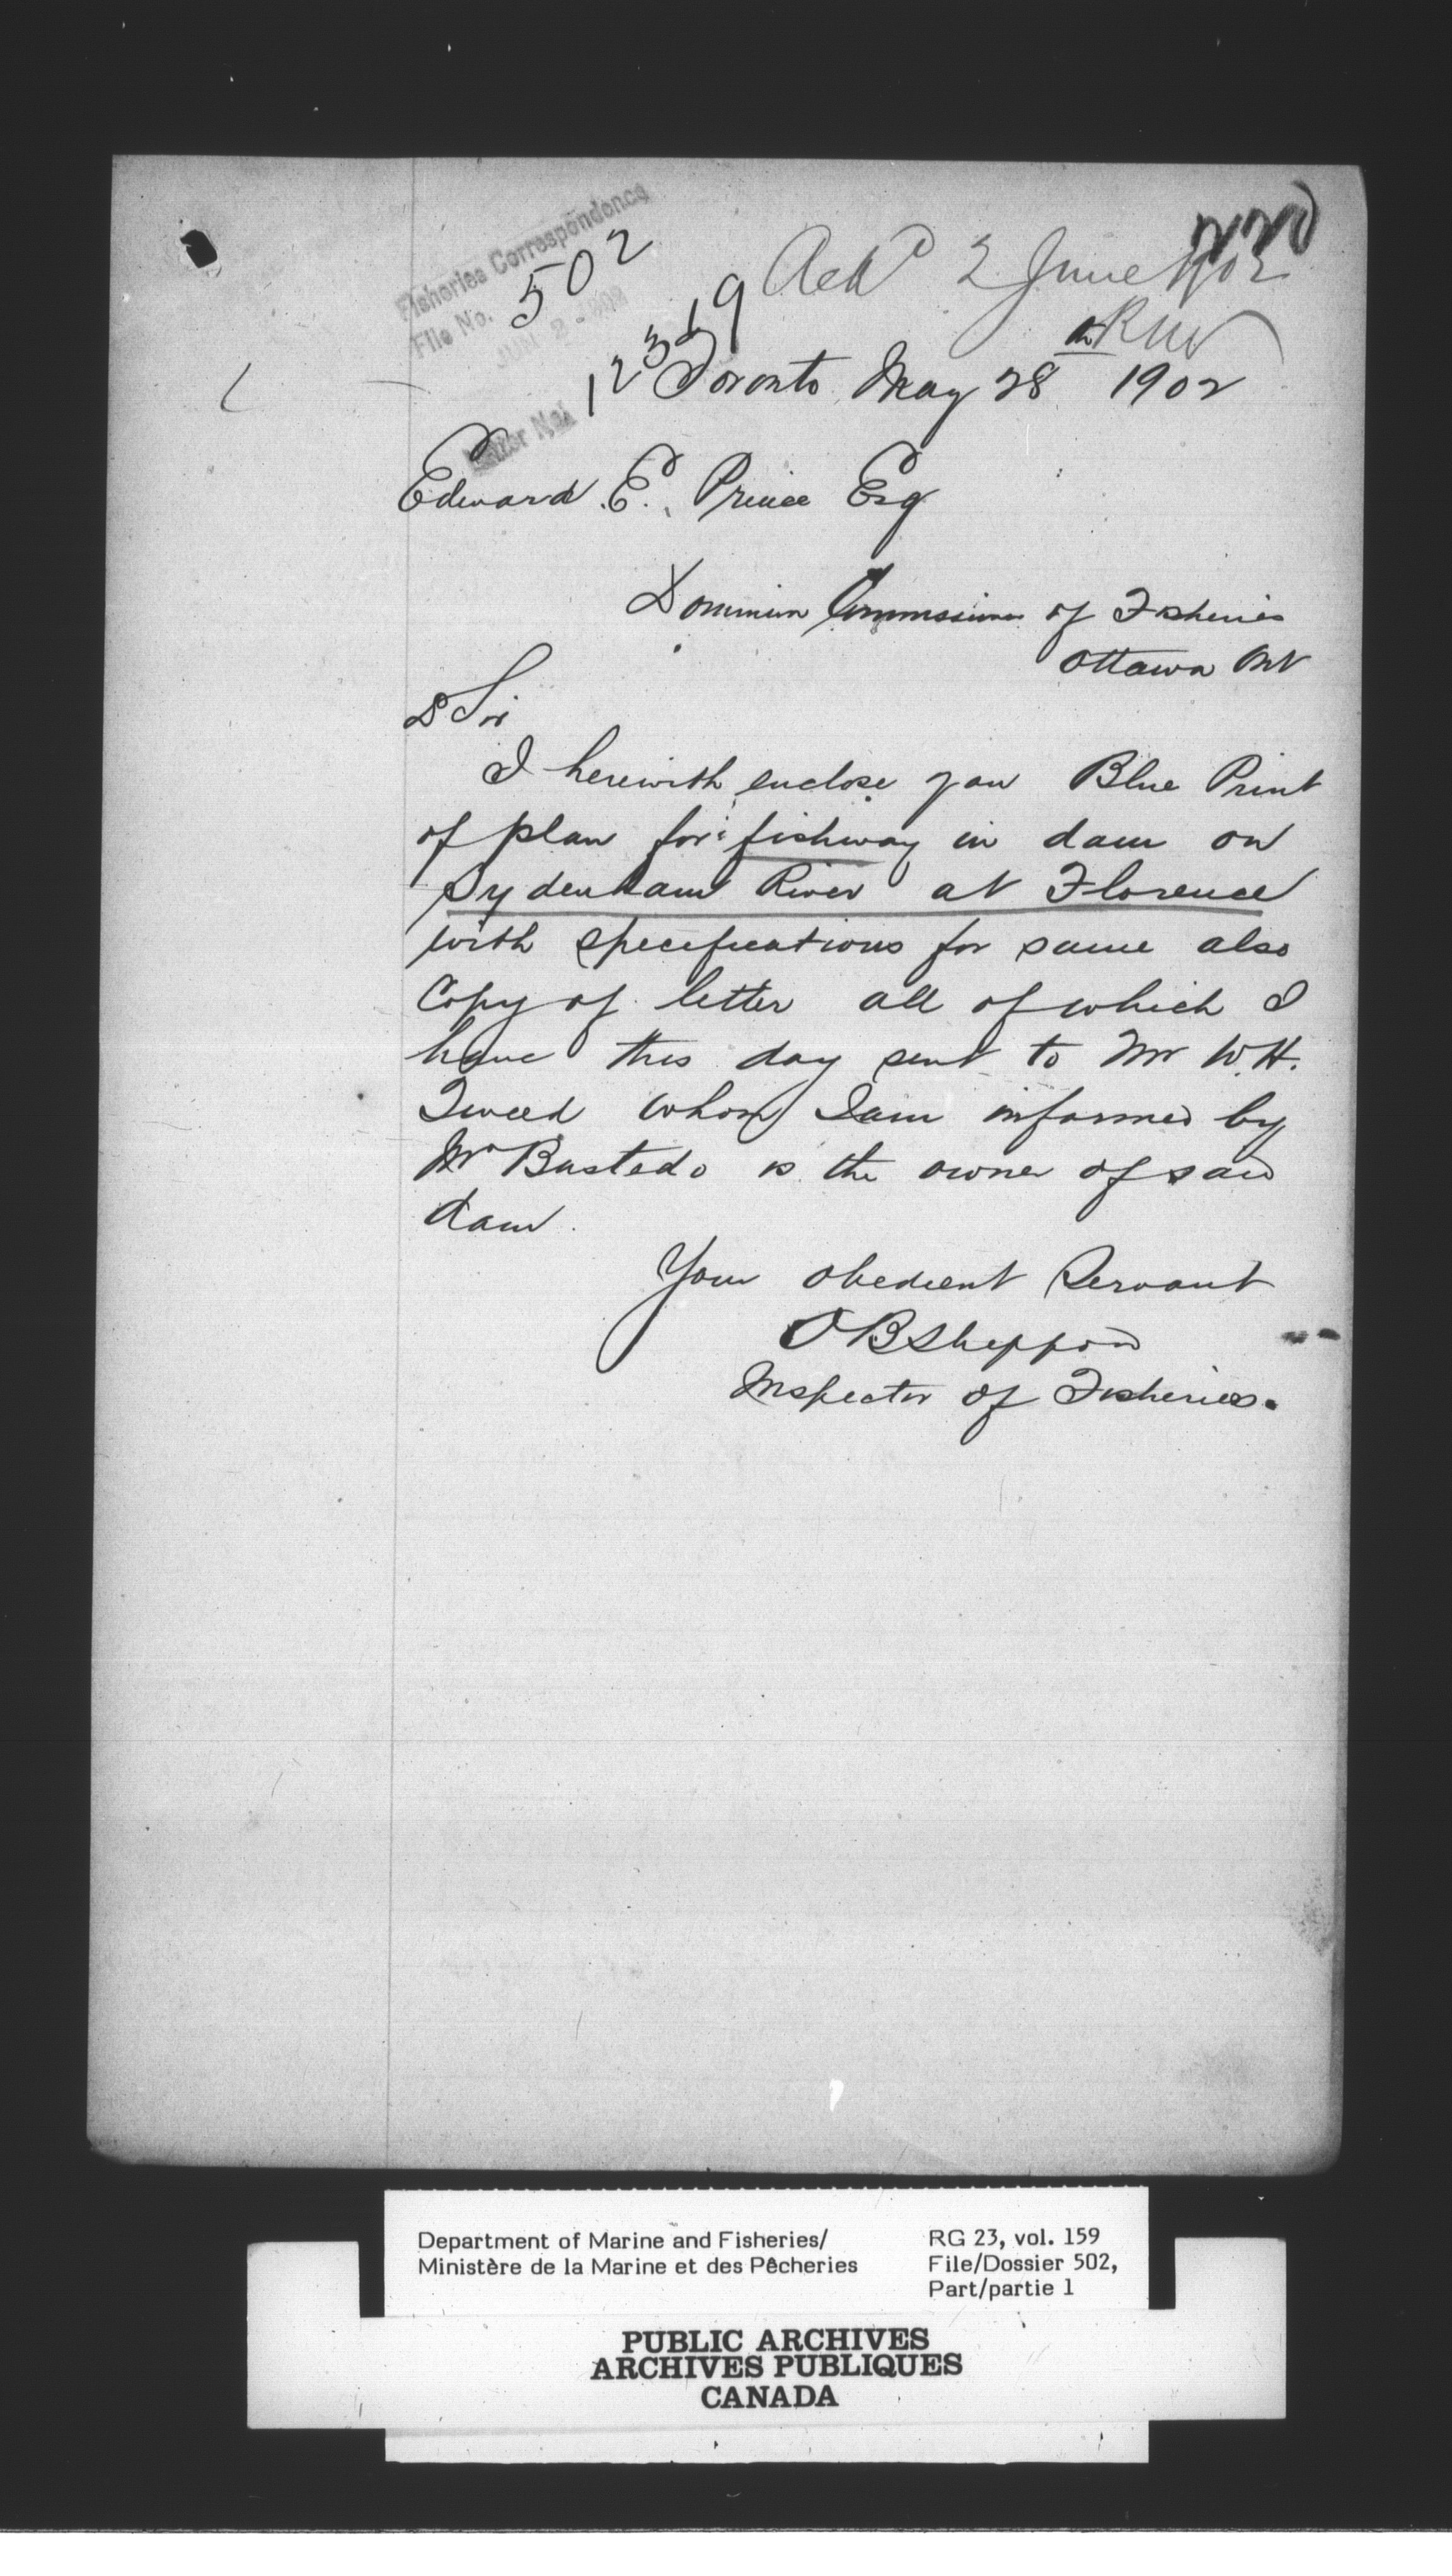 Fisheries Correspondence
File No. 502
JUN 2 - 1902
12319
Ackd 2 June 1902
RNV
Toronto May 28th 1902
Edward E. Prince Esq
Dominion Commissioner of Fisheries
Ottawa Ont
D Sir
I herewith enclose you Blue Print
of plan for fishway in dam on
Sydenham River at Florence
with specifications for same also
Copy of letter all of which I
have this day sent to Mr W.H.
Tweed whom I am informed by
Mr Bastedo is the owner of said
dam.
Your obedient Servant
O B Sheppard
Inspector of Fisheries.
Department of Marine and Fisheries/
Ministère de la Marine et des Pêcheries
RG 23, vol. 159
File/Dossier 502,
Part/partie 1
PUBLIC ARCHIVES
ARCHIVES PUBLIQUES
CANADA